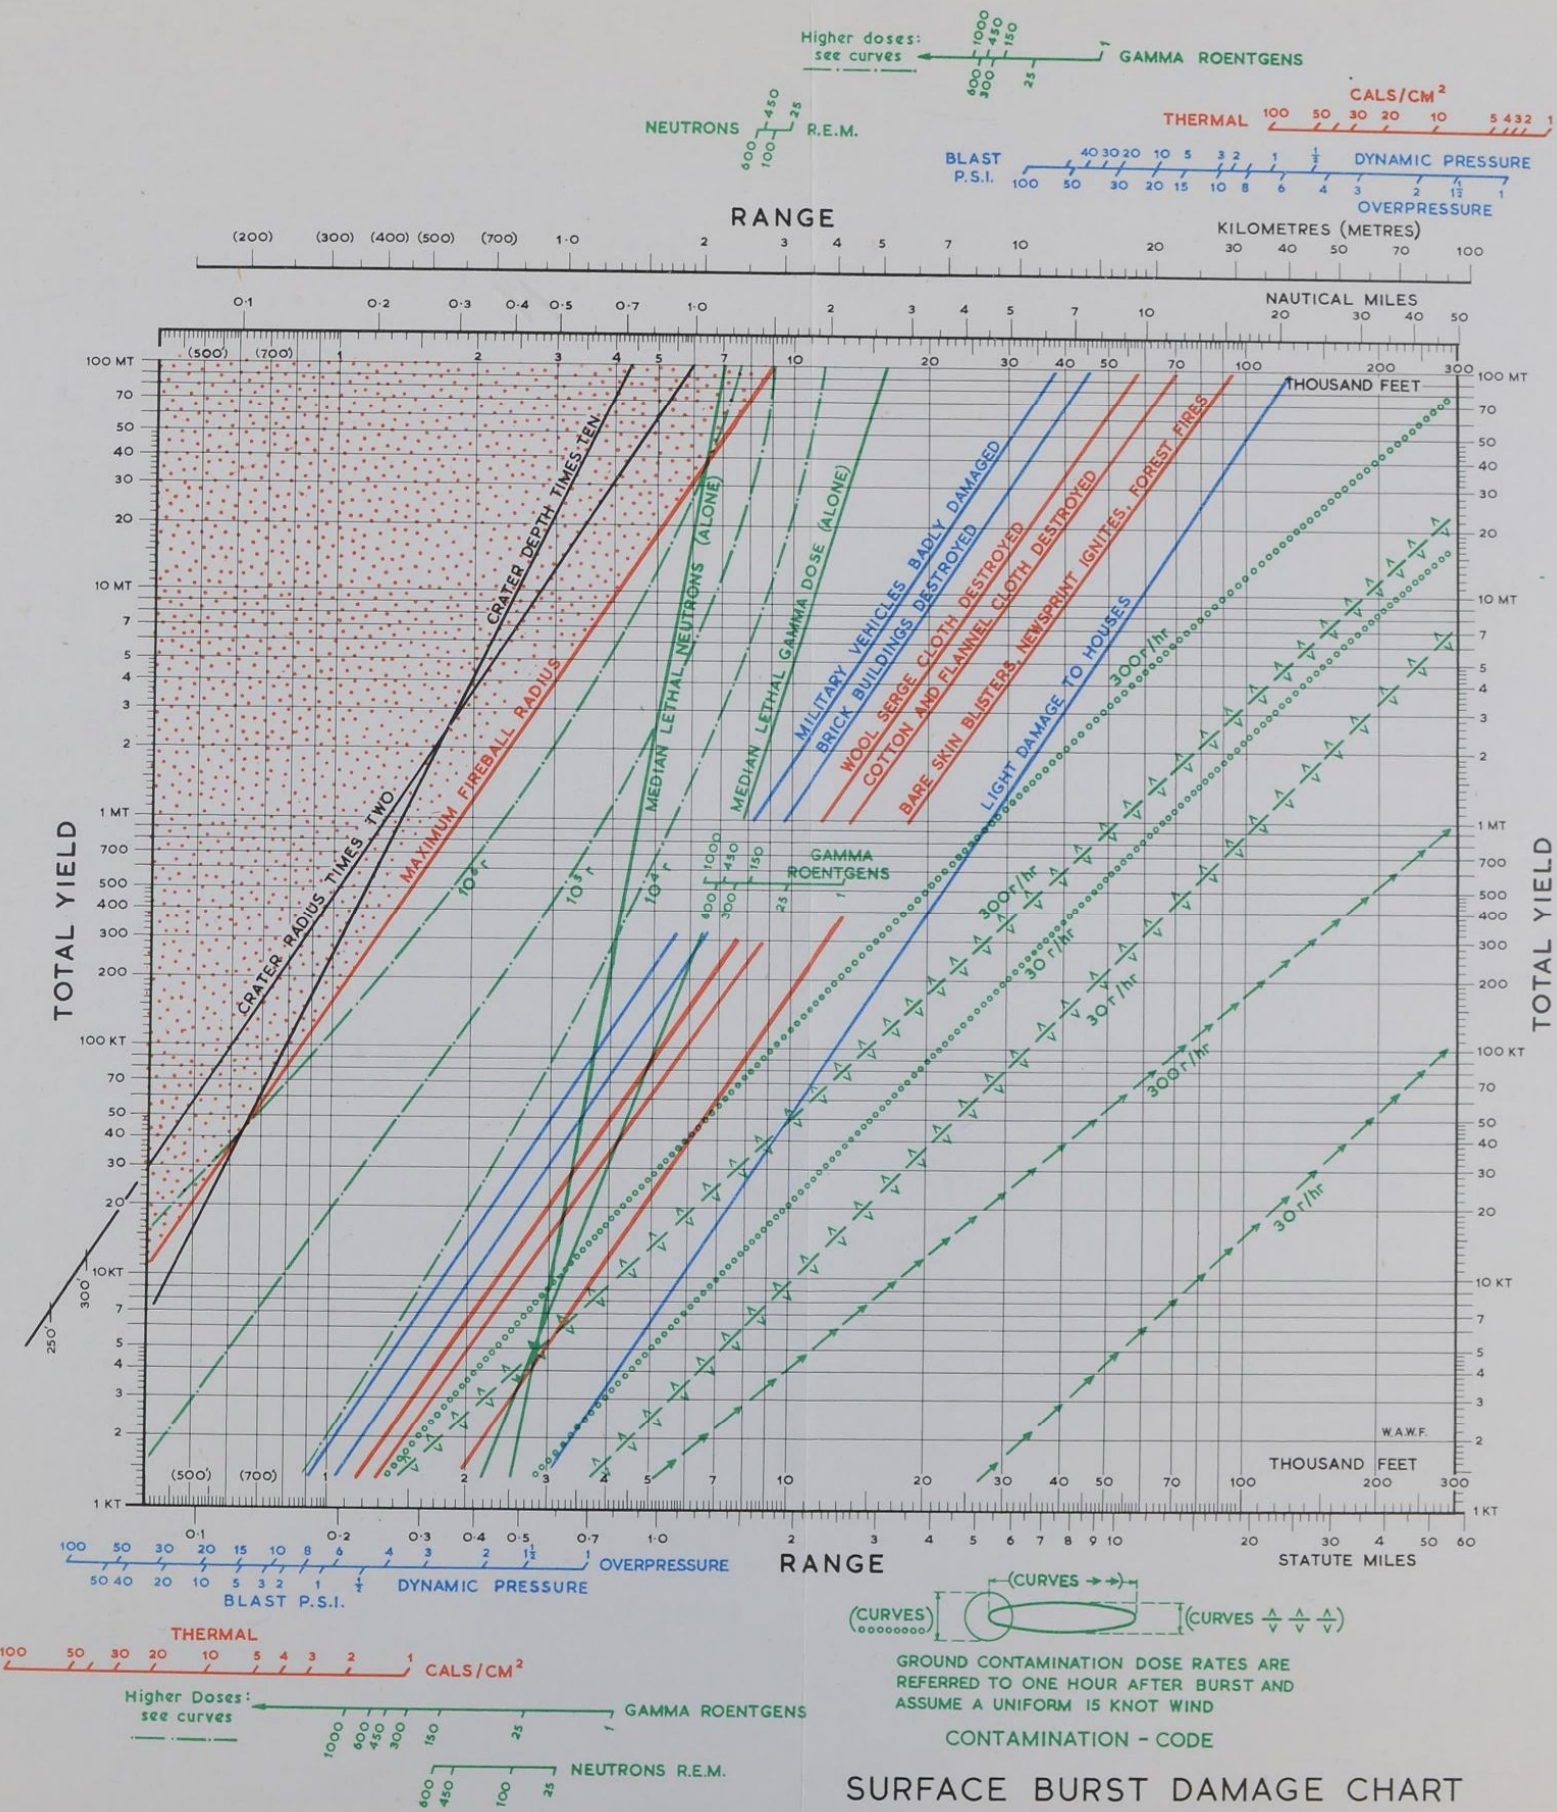 Higher doses:
see curves
1000 450 150 1
600 300 25
GAMMA ROENTGENS
CALS/CM²
THERMAL 100 50 30 20 10 5 4 3 2 1
NEUTRONS 450 25 R.E.M.
600 100
BLAST P.S.I.
40 30 20 10 5 3 2 1 ½ DYNAMIC PRESSURE
100 50 30 20 15 10 8 6 4 3 2 1½ 1
OVERPRESSURE
RANGE
KILOMETRES (METRES)
(200) (300) (400) (500) (700) 1·0 2 3 4 5 7 10 20 30 40 50 70 100
NAUTICAL MILES
0·1 0·2 0·3 0·4 0·5 0·7 1·0 2 3 4 5 7 10 20 30 40 50
(500') (700') 1 2 3 4 5 7 10 20 30 40 50 70 100 200 300
THOUSAND FEET
TOTAL YIELD
100 MT
70
50
40
30
20
10 MT
7
5
4
3
2
1 MT
700
500
400
300
200
100 KT
70
50
40
30
20
10KT
7
5
4
3
2
1 KT
300'
250'
CRATER DEPTH TIMES TEN
CRATER RADIUS TIMES TWO
MAXIMUM FIREBALL RADIUS
MEDIAN LETHAL NEUTRONS (ALONE)
MEDIAN LETHAL GAMMA DOSE (ALONE)
MILITARY VEHICLES BADLY DAMAGED
BRICK BUILDINGS DESTROYED
WOOL SERGE CLOTH DESTROYED
COTTON AND FLANNEL CLOTH DESTROYED
BARE SKIN BLISTERS, NEWSPRINT IGNITES, FOREST FIRES
LIGHT DAMAGE TO HOUSES
10⁶ r
10⁵ r
10⁴ r
1000 450 150
GAMMA
ROENTGENS
600 300 25 1
300r/hr
300r/hr
30r/hr
30r/hr
300r/hr
30r/hr
TOTAL YIELD
100 MT
70
50
40
30
20
10 MT
7
5
4
3
2
1 MT
700
500
400
300
200
100 KT
70
50
40
30
20
10 KT
7
5
4
3
2
1 KT
W.A.W.F.
THOUSAND FEET
(500') (700') 1 2 3 4 5 7 10 20 30 40 50 70 100 200 300
0·1 0·2 0·3 0·4 0·5 0·7 1·0 2 3 4 5 6 7 8 9 10 20 30 4 50 60
RANGE
STATUTE MILES
100 50 30 20 15 10 8 6 4 3 2 1½ 1 OVERPRESSURE
50 40 20 10 5 3 2 1 ½ DYNAMIC PRESSURE
BLAST P.S.I.
THERMAL
100 50 30 20 10 5 4 3 2 1 CALS/CM²
Higher Doses:
see curves
GAMMA ROENTGENS
1000 600 450 300 150 25 1
NEUTRONS R.E.M.
600 450 100 25
(CURVES →→)
(CURVES)
(CURVES
GROUND CONTAMINATION DOSE RATES ARE
REFERRED TO ONE HOUR AFTER BURST AND
ASSUME A UNIFORM 15 KNOT WIND
CONTAMINATION - CODE
SURFACE BURST DAMAGE CHART